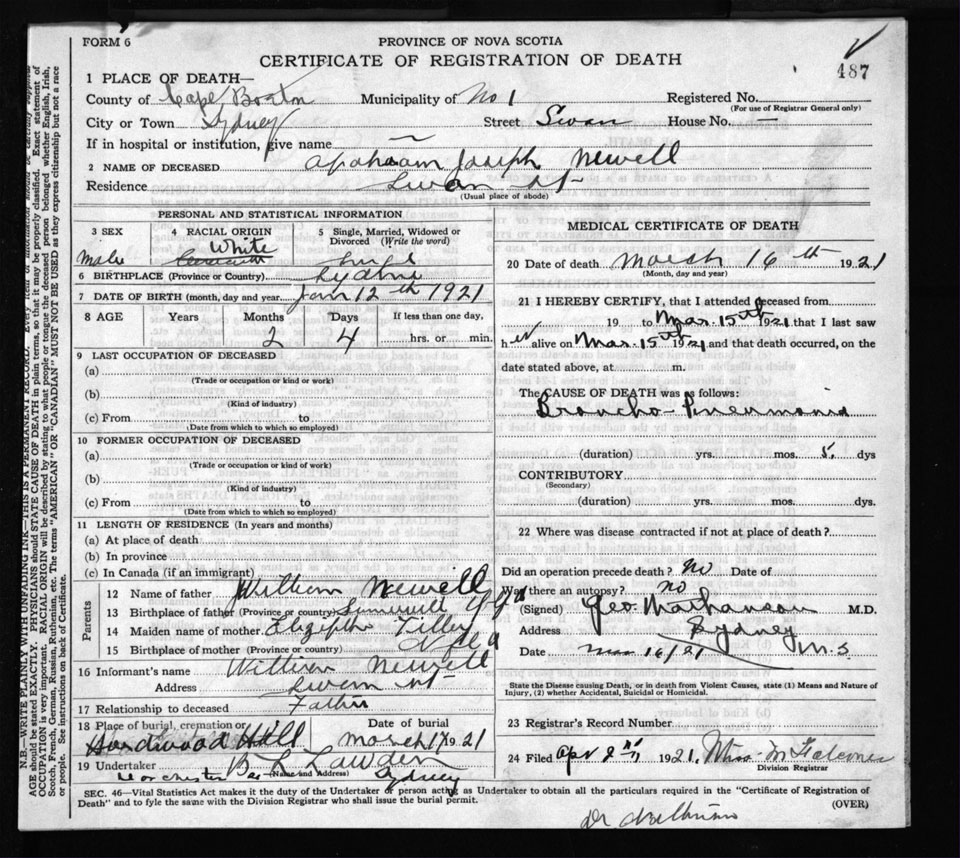 FORM 6
PROVINCE OF NOVA SCOTIA
CERTIFICATE OF REGISTRATION OF DEATH
487
1 PLACE OF DEATH—
County of Cape Breton Municipality of No 1 Registered No.
(For use of Registrar General only)
City or Town Sydney Street Swan House No. —
If in hospital or institution, give name —
2 NAME OF DECEASED Joseph Newell
Residence Swan St
(Usual place of abode)
PERSONAL AND STATISTICAL INFORMATION
3 SEX Male
4 RACIAL ORIGIN White
5 Single, Married, Widowed or Divorced (Write the word)
6 BIRTHPLACE (Province or Country) Sydney
7 DATE OF BIRTH (month, day and year) Jan 12th 1921
8 AGE Years Months Days If less than one day,
2 4 hrs. or min.
9 LAST OCCUPATION OF DECEASED
(a)
(Trade or occupation or kind or work)
(b)
(Kind of industry)
(c) From to
(Date from which to which so employed)
10 FORMER OCCUPATION OF DECEASED
(a)
(Trade or occupation or kind of work)
(b)
(Kind of Industry)
(c) From to
(Date from which to which so employed)
11 LENGTH OF RESIDENCE (In years and months)
(a) At place of death
(b) In province
(c) In Canada (if an immigrant)
Parents
12 Name of father William Newell
13 Birthplace of father (Province or country) Nfld
14 Maiden name of mother Tilley
15 Birthplace of mother (Province or country) Nfld
16 Informant's name William Newell
Address Swan St
17 Relationship to deceased Father
18 Place of burial, cremation or Date of burial
Hardwood Hill March 17 1921
19 Undertaker B L Lawden
(Name and Address)
Dorchester Sydney
MEDICAL CERTIFICATE OF DEATH
20 Date of death March 16th 1921
(Month, day and year)
21 I HEREBY CERTIFY, that I attended deceased from
19 to Mar. 15th 1921 that I last saw
h alive on Mar. 15th 1921 and that death occurred, on the
date stated above, at m.
The CAUSE OF DEATH was as follows:
Broncho-Pneumonia
(duration) yrs. mos. 5. dys
CONTRIBUTORY
(Secondary)
(duration) yrs. mos. dys.
22 Where was disease contracted if not at place of death?
Did an operation precede death? No Date of
Was there an autopsy? no
(Signed) Geo. M.D.
Address Sydney
N.S
Date Mar 16/21
State the Disease causing Death, or in death from Violent Causes, state (1) Means and Nature of
Injury, (2) whether Accidental, Suicidal or Homicidal.
23 Registrar's Record Number
24 Filed Apr 1921. Miss
Division Registrar
SEC. 46—Vital Statistics Act makes it the duty of the Undertaker or person acting as Undertaker to obtain all the particulars required in the "Certificate of Registration of
Death" and to fyle the same with the Division Registrar who shall issue the burial permit. (OVER)
Dr
N.B.—WRITE PLAINLY WITH UNFADING INK—THIS IS A PERMANENT RECORD. Every item of information should be carefully supplied.
AGE should be stated EXACTLY. PHYSICIANS should STATE CAUSE OF DEATH in plain terms, so that it may be properly classified. Exact statement of
OCCUPATION is very important. RACIAL ORIGIN will be described by stating to what people or tongue the deceased person belonged whether English, Irish,
Scotch, French, German, Russian, Ruthenian, etc. The terms "AMERICAN" OR "CANADIAN" MUST NOT BE USED as they express citizenship but not a race
or people. See instructions on back of Certificate.